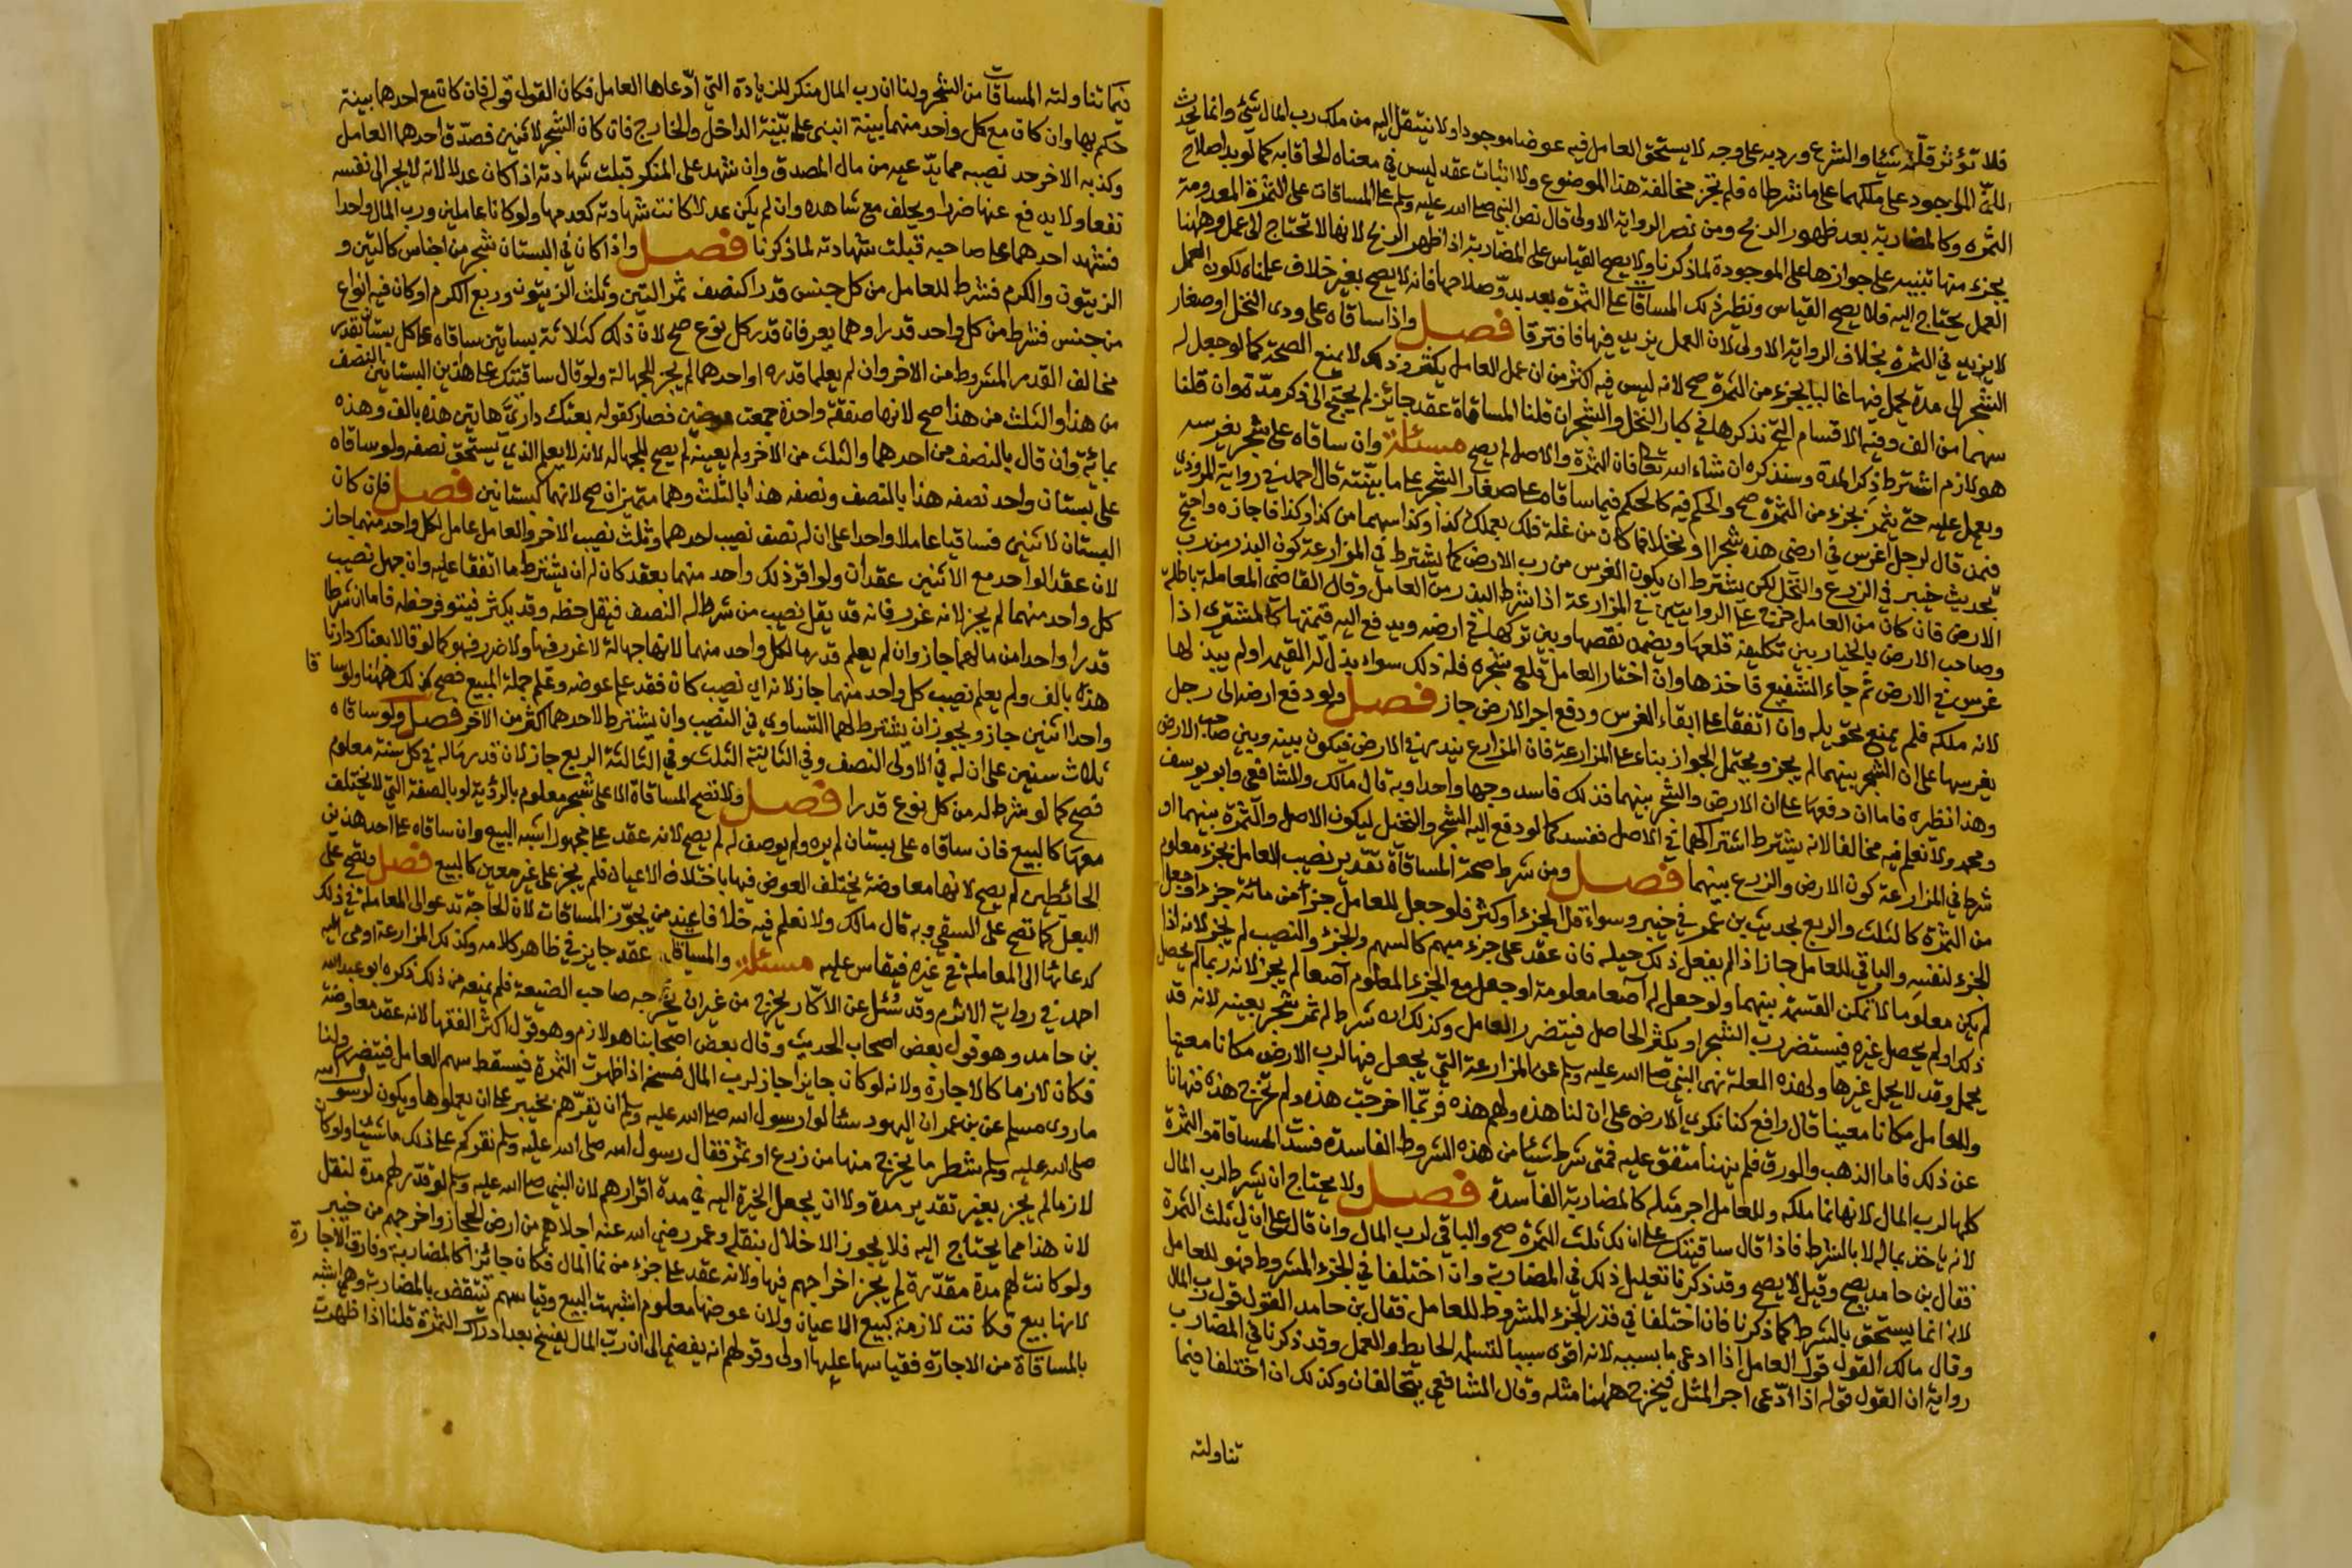 فلا تؤثر قلته شيئا والشرع ورد به على وجه لا يستحق العامل فيه عوضا موجودا ولا ينتقل اليه من ملك رب المال شئ وانما يحدث
الموجود على ملكهما على ما شرطاه فلم تجز مخالفة هذا الموضوع ولا اثبات عقد ليس في معناه الحاقا به كما لو بدا صلاح
الثمرة وكالمضاربة بعد ظهور الربح ومن نصر الرواية الاولى قال نص النبي صلى الله عليه وسلم على المساقات على الثمرة المعدومة
بجزء منها تنبيه على جوازها على الموجودة لما ذكرنا ولا يصح القياس على المضاربة اذا ظهر الربح لانها لا تحتاج الى عمل وههنا
العمل يحتاج اليه فلا يصح القياس ونظير ذلك المساقات على الثمرة بعد بدو صلاحها فانه لا يصح بغير خلاف علمناه لكون العمل
لا يزيد في الثمرة بخلاف الرواية الاولى لان العمل يزيد فيها فافترقا فصل واذا ساقاه على ودي النخل او صغار
الشجر الى مدة يحمل فيها غالبا بجزء من الثمرة صح لانه ليس فيه اكثر من ان عمل العامل يكثر وذلك لا يمنع الصحة كما لو جعل له
سهما من الف وفيه الاقسام التي نذكرها في كبار النخل والشجر ان قلنا المساقاة عقد جائز لم يحتج الى ذكر مدة وان قلنا
هو لازم اشترط ذكر المدة وسنذكره ان شاء الله تعالى فان الثمرة والاصل لم يصح مسئلة وان ساقاه على شجر يغرسه
ويعمل عليه حتى يثمر بجزء من الثمرة صح والحكم فيه كالحكم فيما ساقاه على صغار الشجر على ما بينته قال احمد في رواية المروذي
فيمن قال لرجل اغرس في ارضي هذه شجرا او نخلا فما كان من غلة فلك بعملك كذا وكذا سهما من كذا وكذا فاجازه واحتج
بحديث خيبر في الزرع والنخل لكن يشترط ان يكون الغرس من رب الارض كما يشترط في المزارعة كون البذر من رب
الارض فان كان من العامل خرج على الروايتين في المزارعة اذا شرط البذر من العامل وقال القاضي المعاملة باطلة
وصاحب الارض بالخيار بين تكليفه قلعها ويضمن نقصها وبين تركها في ارضه ويدفع اليه قيمتها كالمشتري اذا
غرس في الارض ثم جاء الشفيع فاخذها وان اختار العامل قلع شجره فله ذلك سواء بذل له القيمة او لم يبذلها
لانه ملكه فلم يمنع تحويله وان اتفقا على ابقاء الغرس ودفع اجر الارض جاز فصل ولو دفع ارضه الى رجل
يغرسها على ان الشجر بينهما لم يجز ويحتمل الجواز بناء على المزارعة فان المزارع يبذر في الارض فيكون بينه وبين صاحب الارض
وهذا نظيره فاما ان دفعها على ان الارض والشجر بينهما فذلك فاسد وجها واحدا وبه قال مالك والشافعي وابو يوسف
ومحمد ولا نعلم فيه مخالفا لانه يشترط اشتراكهما في الاصل ففسد كما لو دفع اليه الشجر والنخيل ليكون الاصل والثمرة بينهما او
شرط في المزارعة كون الارض والزرع بينهما فصل ومن شرط صحة المساقاة تقدير نصيب العامل بجزء معلوم
من الثمرة كالثلث والربع بحديث بن عمر في خيبر وسواء قل الجزء او كثر فلو جعل للعامل جزأ من مائة جزء او جعل
الجزء لنفسه والباقي للعامل جاز اذا لم يفعل ذلك حيلة فان عقد على جزء مبهم كالسهم والجزء والنصيب لم يجز لانه اذا
لم يكن معلوما لا تمكن القسمة بينهما ولو جعل له آصعا معلومة او جعل مع الجزء المعلوم آصعا لم يجز لانه ربما لم يحصل
ذلك او لم يحصل غيره فيستضر رب الشجر او يكثر الحاصل فيتضرر العامل وكذلك ان شرط له ثمر شجر بعينه لانه قد
يحمل وقد لا يحمل غيرها ولهذه العلة نهى النبي صلى الله عليه وسلم عن المزارعة التي يجعل فيها لرب الارض مكانا معينا
وللعامل مكانا معينا قال رافع كنا نكري الارض على ان لنا هذه ولهم هذه فربما اخرجت هذه ولم تخرج هذه فنهانا
عن ذلك فاما الذهب والورق فلم ينهنا متفق عليه فمتى شرط شيئا من هذه الشروط الفاسدة فسدت المساقاة والثمرة
كلها لرب المال لانها نما ملكه وللعامل اجر مثله كالمضاربة الفاسدة فصل ولا يحتاج ان يشرط لرب المال
لانه ياخذ بماله لا بالشرط فاذا قال ساقيتك على ان لك ثلث الثمرة صح والباقي لرب المال وان قال على ان لي ثلث الثمرة
فقال بن حامد يصح وقيل لا يصح وقد ذكرنا تعليل ذلك في المضاربة وان اختلفا في الجزء المشروط فهو للعامل
لانه انما يستحق بالشرط كما ذكرنا فان اختلفا في قدر الجزء المشروط للعامل فقال بن حامد القول قول رب المال
وقال مالك القول قول العامل اذا ادعى ما بسببه لانه اقوى سببا لتسلمه الحايط والعمل وقد ذكرنا في المضارب
رواية ان القول قوله اذا ادعى اجر المثل فيخرج ههنا مثله وقال الشافعي يتحالفان وكذلك ان اختلفا فيما
تناولته
فيما تناولته المساقات من الشجر ولنا ان رب المال منكر للزيادة التي ادعاها العامل فكان القول قوله فان كان مع احدهما بينة
حكم بها وان كان مع كل واحد منهما بينة انبنى على بينة الداخل والخارج فان كان الشجر لاثنين فصدق احدهما العامل
وكذبه الاخر حد نصيبه مما يدعيه من مال المصدق وان شهد على المنكر قبلت شهادته اذا كان عدلا لانه لا يجر الى نفسه
نفعا ولا يدفع عنها ضررا ويحلف مع شاهده وان لم يكن عدلا كانت شهادته كعدمها ولو كانا عاملين ورب المال واحدا
فشهد احدهما على صاحبه قبلت شهادته لما ذكرنا فصل واذا كان في البستان شجر من اجناس كالتين و
الزيتون والكرم فشرط للعامل من كل جنس قدرا كنصف ثمر التين وثلث الزيتون وربع الكرم او كان فيه انواع
من جنس فشرط من كل واحد قدرا وهما يعرفان قدر كل نوع صح لان ذلك كثلاثة بساتين ساقاه على كل بستان بقدر
مخالف القدر المشروط من الاخر وان لم يعلما قدره او احدهما لم يجز للجهالة ولو قال ساقيتك على هذين البستانين بالنصف
من هذا والثلث من هذا صح لانها صفقة واحدة جمعت عوضين فصار كقوله بعتك داري هاتين هذه بالف وهذه
بمائة وان قال بالنصف من احدهما والثلث من الاخر ولم يعينه لم يصح للجهالة لانه لا يعلم الذي يستحق نصفه ولو ساقاه
على بستان واحد نصفه هذا بالنصف ونصفه هذا بالثلث وهما متميزان صح لانهما كبستانين فصل فان كان
البستان لاثنين فساقيا عاملا واحدا على ان له نصف نصيب احدهما وثلث نصيب الاخر والعامل عامل لكل واحد منهما جاز
لان عقد الواحد مع الاثنين عقدان ولو افرد لك واحد منهما بعقد كان له ان يشترط ما اتفقا عليه وان جهل نصيب
كل واحد منهما لم يجز لانه غرر فانه قد يقل نصيب من شرط له النصف فيقل حظه وقد يكثر فيتوفر حظه فاما ان شرطا
قدرا واحدا من مالهما جاز وان لم يعلم قدر ما لكل واحد منهما لانها جهالة لا غرر فيها ولا ضرر فهو كما لو قالا بعناك دارنا
هذه بالف ولم يعلم نصيب كل واحد منهما جاز لانه اي نصيب كان فقد علم عوضه وعلم جملة المبيع فصح كذلك ههنا ولو ساقا
واحدا اثنين جاز ويجوز ان يشترط لهما التساوي في النصيب وان يشترط لاحدهما اكثر من الاخر فصل ولو ساقاه
ثلاث سنين على ان له في الاولى النصف وفي الثانية الثلث وفي الثالثة الربع جاز لان قدر ماله في كل سنة معلوم
فصح كما لو شرط له من كل نوع قدرا فصل ولا تصح المساقاة الا على شجر معلوم بالرؤية او بالصفة التي لا يختلف
معها كالبيع فان ساقاه على بستان لم يره ولم يوصف له لم يصح لانه عقد على مجهول اشبه البيع وان ساقاه على احد هذين
الحائطين لم يصح لانها معاوضة يختلف العوض فيها باختلاف الاعيان فلم يجز على غير معين كالبيع فصل وتصح على
البعل كما تصح على السقي وبه قال مالك ولا نعلم فيه خلافا عند من يجوز المساقات لان الحاجة تدعو الى المعاملة في ذلك
كدعائها الى المعاملة في غيره فيقاس عليه مسئلة والمساقات عقد جايز في ظاهر كلامه وكذلك المزارعة اومى اليه
احمد في رواية الاثرم وقد سئل عن الاكار يخرج من غير ان يخرجه صاحب الضيعة فلم يمنعه من ذلك ذكره ابو عبدالله
بن حامد وهو قول بعض اصحاب الحديث وقال بعض اصحابنا هو لازم وهو قول اكثر الفقها لانه عقد معاوضة
فكان لازما كالاجارة ولانه لو كان جايزا جاز لرب المال فسخه اذا ظهرت الثمرة فيسقط سهم العامل فيتضرر ولنا
ما روى مسلم عن بن عمر ان اليهود سئالوا رسول الله صلى الله عليه وسلم ان يقرهم بخيبر على ان يعملوها ويكون لرسول الله
صلى الله عليه وسلم شطر ما يخرج منها من زرع او ثمر فقال رسول الله صلى الله عليه وسلم نقركم على ذلك ما شئنا ولو كان
لازما لم يجز بغير تقدير مدة ولا ان يجعل الخيرة اليه في مدة اقرارهم لان النبي صلى الله عليه وسلم لو قدر لهم مدة لنقل
لان هذا مما يحتاج اليه فلا يجوز الاخلال بنقله وعمر رضي الله عنه اجلاهم من ارض الحجاز واخرجهم من خيبر
ولو كانت لهم مدة مقدرة لم يجز اخراجهم فيها ولانه عقد على جزء من نما المال فكان جائزا كالمضاربة وفارق الاجارة
لانها بيع فكانت لازمة كبيع الاعيان ولان عوضها معلوم اشبهت البيع وقياسهم ينتقض بالمضاربة وهي اشبه
بالمساقاة من الاجارة فقياسها عليها اولى وقولهم انه يفضي الى ان رب المال يفسخ بعد ادراك الثمرة قلنا اذا ظهرت